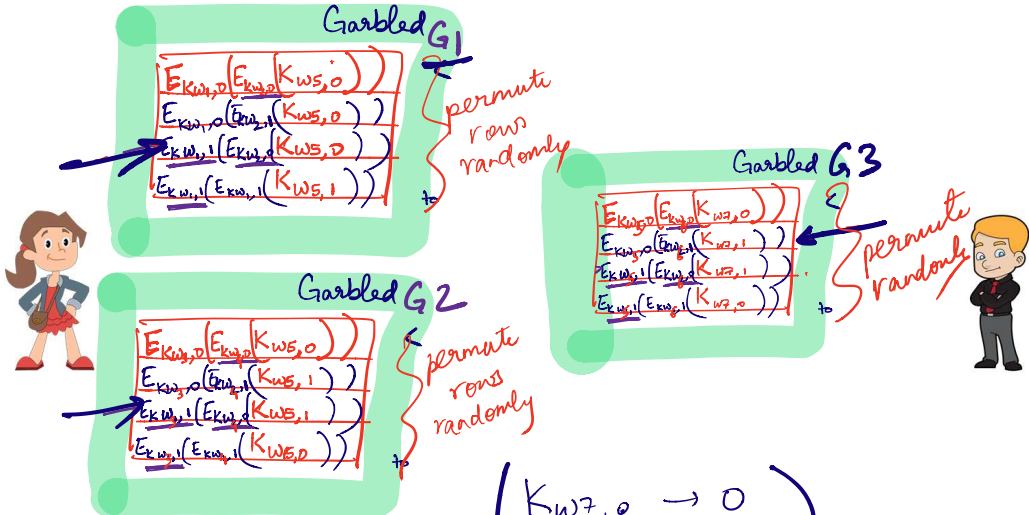 Garbled G1
E_{Kw1,0}(E_{Kw2,0}(K_{w5,0}))
E_{Kw1,0}(E_{Kw2,1}(K_{w5,0}))
E_{Kw1,1}(E_{Kw2,0}(K_{w5,0}))
E_{Kw1,1}(E_{Kw1,1}(K_{w5,1}))
permute
rows
randomly
to
Garbled G2
E_{Kw3,0}(E_{Kw4,0}(K_{w5,0}))
E_{Kw3,0}(E_{Kw4,1}(K_{w5,1}))
E_{Kw3,1}(E_{Kw4,0}(K_{w5,1}))
E_{Kw3,1}(E_{Kw4,1}(K_{w5,0}))
permute
rows
randomly
to
Garbled G3
E_{Kw5,0}(E_{Kw6,0}(K_{w7,0}))
E_{Kw5,0}(E_{Kw6,1}(K_{w7,1}))
E_{Kw5,1}(E_{Kw6,0}(K_{w7,1}))
E_{Kw5,1}(E_{Kw6,1}(K_{w7,0}))
permute
randomly
to
(K_{w7,0} → 0)